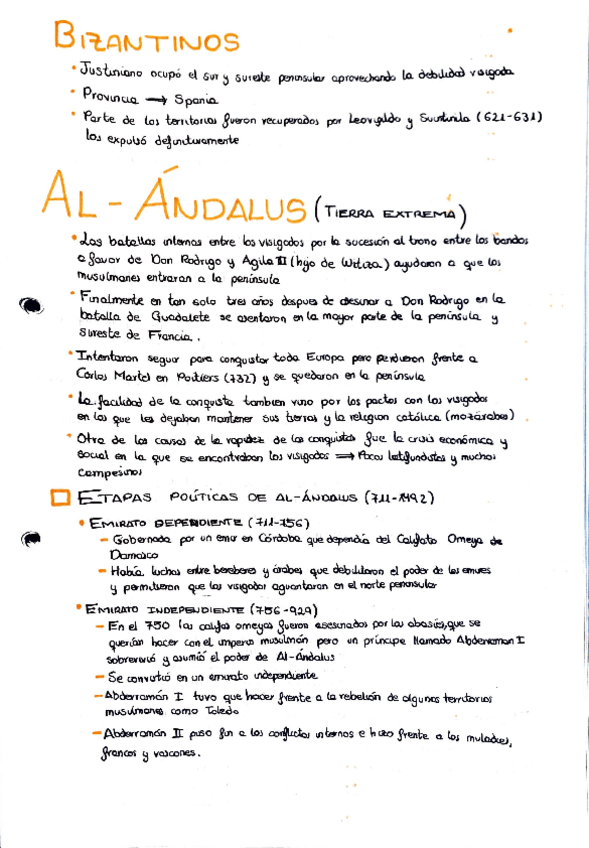 BIZANTINOS
• Justiniano ocupó el sur y sureste peninsular aprovechando la debilidad visigoda
• Provincia → Spania
• Parte de los territorios fueron recuperados por Leovigildo y Suintinla (621-631)
los expulsó definitivamente
AL-ÁNDALUS (TIERRA EXTREMA)
• Las batallas internas entre los visigodos por la sucesión al trono entre los bandos
a favor de Don Rodrigo y Agila II (hijo de Witiza) ayudaron a que los
musulmanes entraran a la península
• Finalmente en tan solo tres años despues de asesinar a Don Rodrigo en la
batalla de Guadalete se asentaron en la mayor parte de la península y
sureste de Francia.
• Intentaron seguir para conquistar toda Europa pero perdieron frente a
Carlos Martel en Poitiers (732) y se quedaron en la península
• La facilidad de la conquista tambien vino por los pactos con los visigodos
en los que les dejaban mantener sus tierras y la religion católica (mozárabes)
• Otra de las causas de la rapidez de las conquistas fue la crisis económica y
social en la que se encontraban los visigodos → Pocos latifundistas y muchos
campesinos
ETAPAS POLÍTICAS DE AL-ÁNDALUS (711-1492)
• EMIRATO DEPENDIENTE (711-756)
– Gobernada por un emir en Córdoba que dependía del Califato Omeya de
Damasco
– Había luchas entre bereberes y árabes que debilitaron el poder de los emires
y permitieron que los visigodos aguantaran en el norte peninsular
• EMIRATO INDEPENDIENTE (756-929)
– En el 750 los califas omeyas fueron asesinados por los abasíes, que se
querían hacer con el imperio musulmán pero un príncipe llamado Abderraman I
sobrevivió y asumió el poder de Al-Ándalus
– Se convirtió en un emirato independiente
– Abderramán I tuvo que hacer frente a la rebelión de algunos territorios
musulmanes como Toledo
– Abderramán II puso fin a los conflictos internos e hizo frente a los muladíes,
francos y vascones.